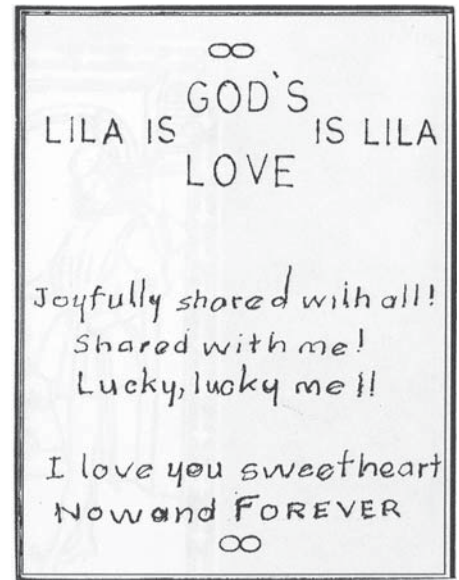 ∞
GOD'S
LILA IS IS LILA
LOVE
Joyfully shared with all!
Shared with me!
Lucky, lucky me!!
I love you sweetheart
Now and FOREVER
∞